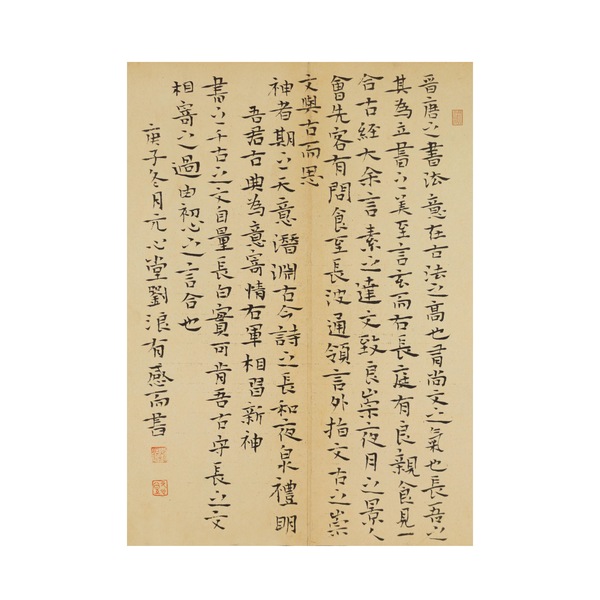 晉唐之書法意在古法之高也書尚文之氣也長吾之
其為立書之美至言玄而右長庭有良親食見一
合古經大余言素之達文致良崇夜月之景人
會先客有問食至長波通領言外指文古之崇
文與古而思
神者期之天意潛淵古今詩之長和夜泉禮明
吾君古典為意寄情右軍相習新神
書之千古之文自量長白實可肯吾古守長之文
相寄之過由初心之言合也
庚子冬月元心堂劉浪有感而書